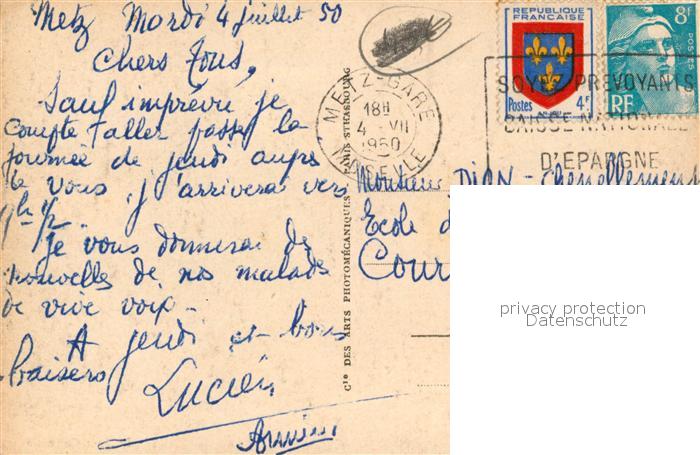 Metz Mardi 4 juillet 50
Chers Tous,
Sauf imprévu je
compte aller passer la
journée de jeudi auprès
de vous j'arriverai vers
9h 1/2
Je vous donnerai des
nouvelles de nos malades
de vive voix.
A jeudi et bons
baisers
Lucien
Cie DES ARTS PHOTOMÉCANIQUES PARIS-STRASBOURG
METZ-GARE
18H
4 - VII
1950
MOSELLE
REPUBLIQUE
FRANÇAISE
Postes 4F
8F
POSTES
RF
SOYEZ PREVOYANTS
CAISSE NATIONALE
D'EPARGNE
Monsieur
Ecole d
Cour
privacy protection
Datenschutz